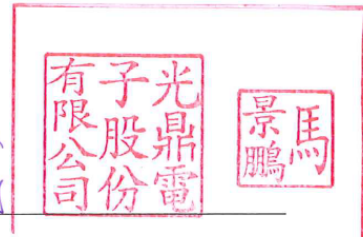 光鼎電
子股份
有限公司
馬
景鵬